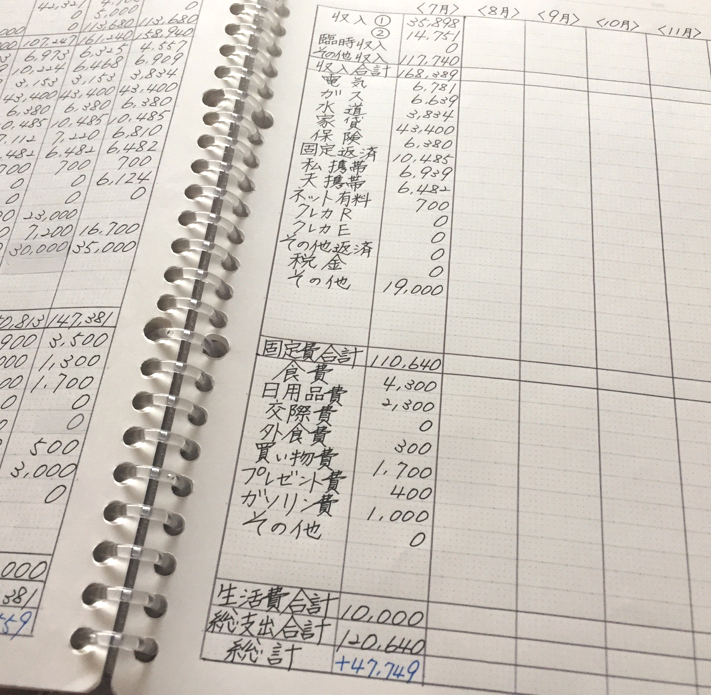 5,000 0
113,680 113,680
107,247 161,240 158,940
6,973 6,325 4,557
10,224 6,468 6,909
3,153 3,153 3,834
43,400 43,400 43,400
6,380 6,380 6,380
10,485 10,485 10,485
7,112 7,220 6,810
6,482 6,482
700 700 700
0 0 6,124
0 0 0
23,000
0 7,200 16,700
30,000 35,000
147,381
3,500
1,300
1,700
0
0
500
3,000
0
<7月> <8月> <9月> <10月> <11月>
収入① 35,898
② 14,751
臨時収入 0
その他収入 117,740
収入合計 168,389
電気 6,781
ガス 6,639
水道 3,834
家賃 43,400
保険 6,380
固定返済 10,485
私携帯 6,939
夫携帯 6,482
ネット有料 700
クレカR 0
クレカE 0
その他返済 0
税金 0
その他 19,000
固定費合計 110,640
食費 4,300
日用品費 2,300
交際費 0
外食費 300
買い物費 1,700
プレゼント費 400
ガソリン費 1,000
その他 0
生活費合計 10,000
総支出合計 120,640
総計 +47,749